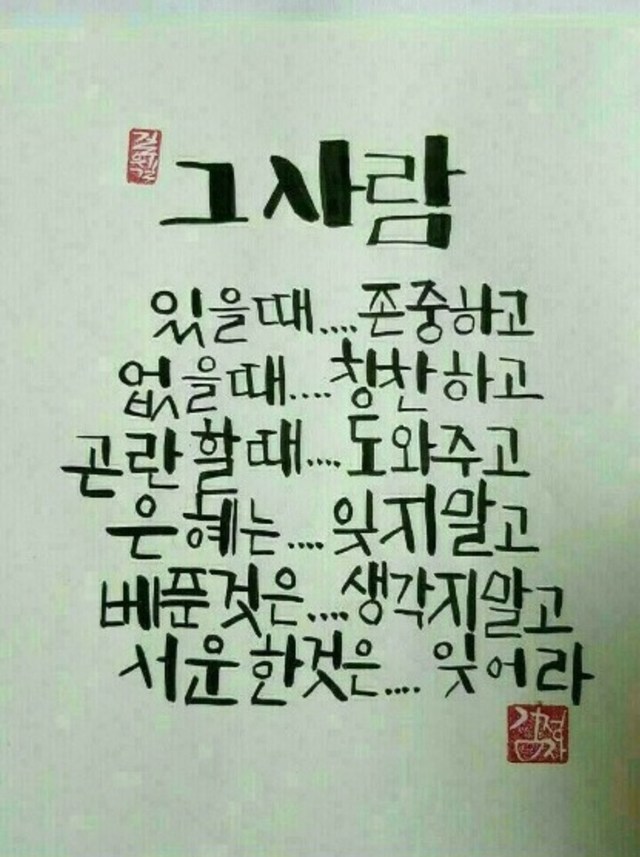 그 사람
있을때....존중하고
없을때....칭찬하고
곤란할때....도와주고
은혜는....잊지말고
베푼것은....생각지말고
서운한것은....잊어라